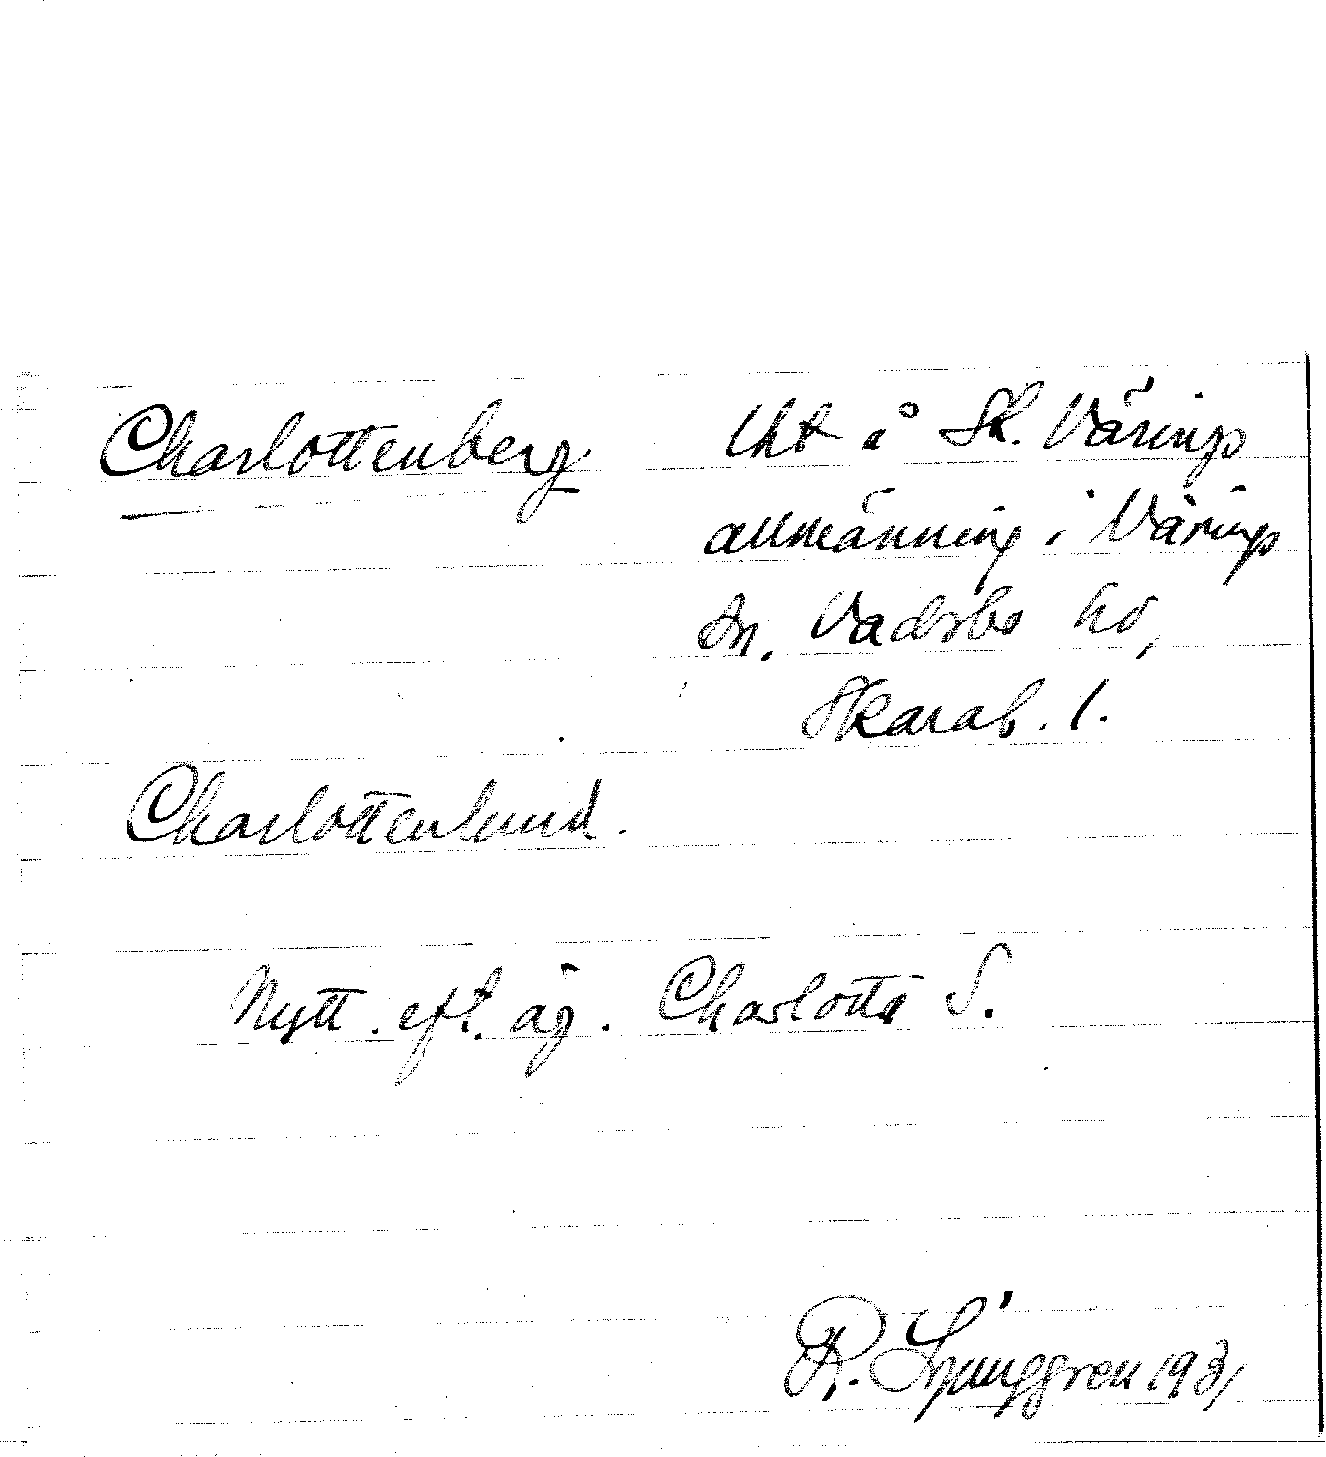 Charlottenberg lht å St. Värings
allmänning i Värings
sn. Vadsbo hd,
Skarab. l.
Charlottenlund.
Nytt. eft. äg. Charlotta S.
R. Ljunggren 1931